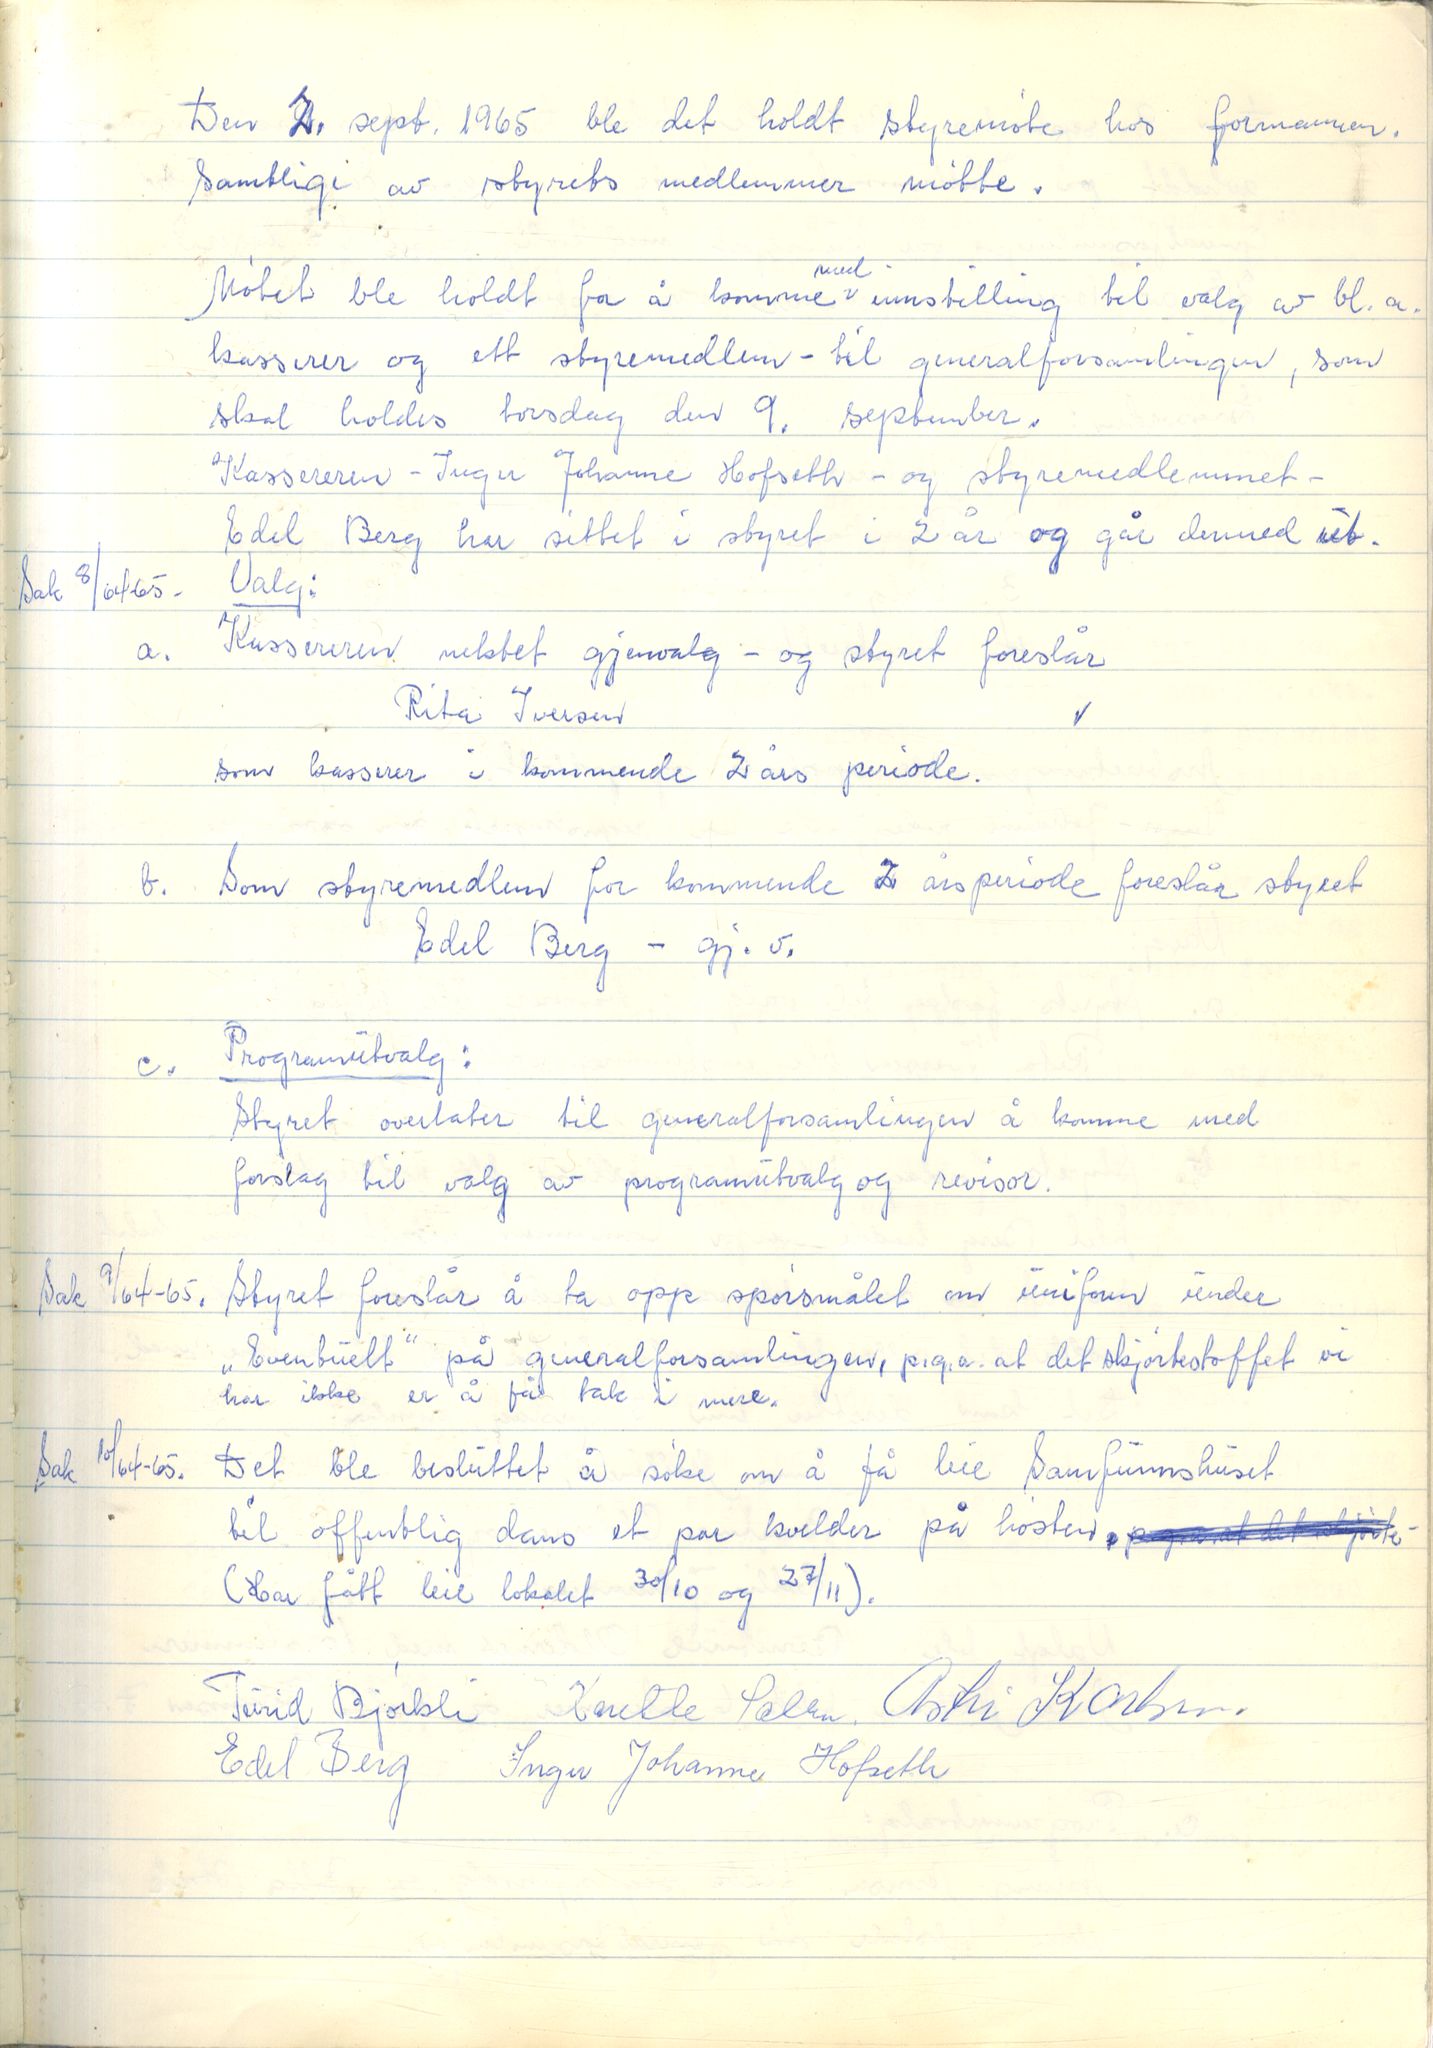 Den 2. sept. 1965 ble det holdt styremöte hos formannen.
Samtlige av styrets medlemmer mötte.
Mötet ble holdt for å komme med innstilling til valg av bl. a.
kasserer og ett styremedlem - til generalforsamlingen, som
skal holdes torsdag den 9. september.
Kassereren - Inger Johanne Hofseth - og styremedlemmet -
Edel Berg har sittet i styret i 2 år og går dermed ut.
Sak 8/64-65. Valg:
a. Kassereren nektet gjenvalg - og styret foreslår
Rita Iversen
som kasserer i kommende 2 års periode.
b. Som styremedlem for kommende 2 årsperiode foreslår styret
Edel Berg - gj. v.
c. Programutvalg:
Styret overlater til generalforsamlingen å komme med
forslag til valg av programutvalg og revisor.
Sak 9/64-65. Styret foreslår å ta opp spörsmålet om uniform under
„Eventuelt“ på generalforsamlingen, p.g.a. at det skjörtestoffet vi
har ikke er å få tak i mere.
Sak 10/64-65. Det ble besluttet å söke om å få leie Samfunnshuset
til offentlig dans et par kvelder på hösten. p.g.a. at det skjörte-
(Har fått leie lokalet 30/10 og 27/11).
Turid Björkli Astri Karlsen.
Edel Berg Inger Johanne Hofseth